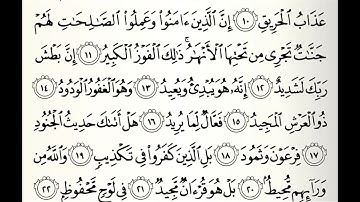 عَذَابُ ٱلْحَرِيقِ ١٠ إِنَّ ٱلَّذِينَ ءَامَنُوا۟ وَعَمِلُوا۟ ٱلصَّٰلِحَٰتِ لَهُمْ
جَنَّٰتٌ تَجْرِى مِن تَحْتِهَا ٱلْأَنْهَٰرُ ۚ ذَٰلِكَ ٱلْفَوْزُ ٱلْكَبِيرُ ١١ إِنَّ بَطْشَ
رَبِّكَ لَشَدِيدٌ ١٢ إِنَّهُۥ هُوَ يُبْدِئُ وَيُعِيدُ ١٣ وَهُوَ ٱلْغَفُورُ ٱلْوَدُودُ ١٤
ذُو ٱلْعَرْشِ ٱلْمَجِيدُ ١٥ فَعَّالٌ لِّمَا يُرِيدُ ١٦ هَلْ أَتَىٰكَ حَدِيثُ ٱلْجُنُودِ
١٧ فِرْعَوْنَ وَثَمُودَ ١٨ بَلِ ٱلَّذِينَ كَفَرُوا۟ فِى تَكْذِيبٍ ١٩ وَٱللَّهُ مِن
وَرَآئِهِم مُّحِيطٌۢ ٢٠ بَلْ هُوَ قُرْءَانٌ مَّجِيدٌ ٢١ فِى لَوْحٍ مَّحْفُوظٍۭ ٢٢